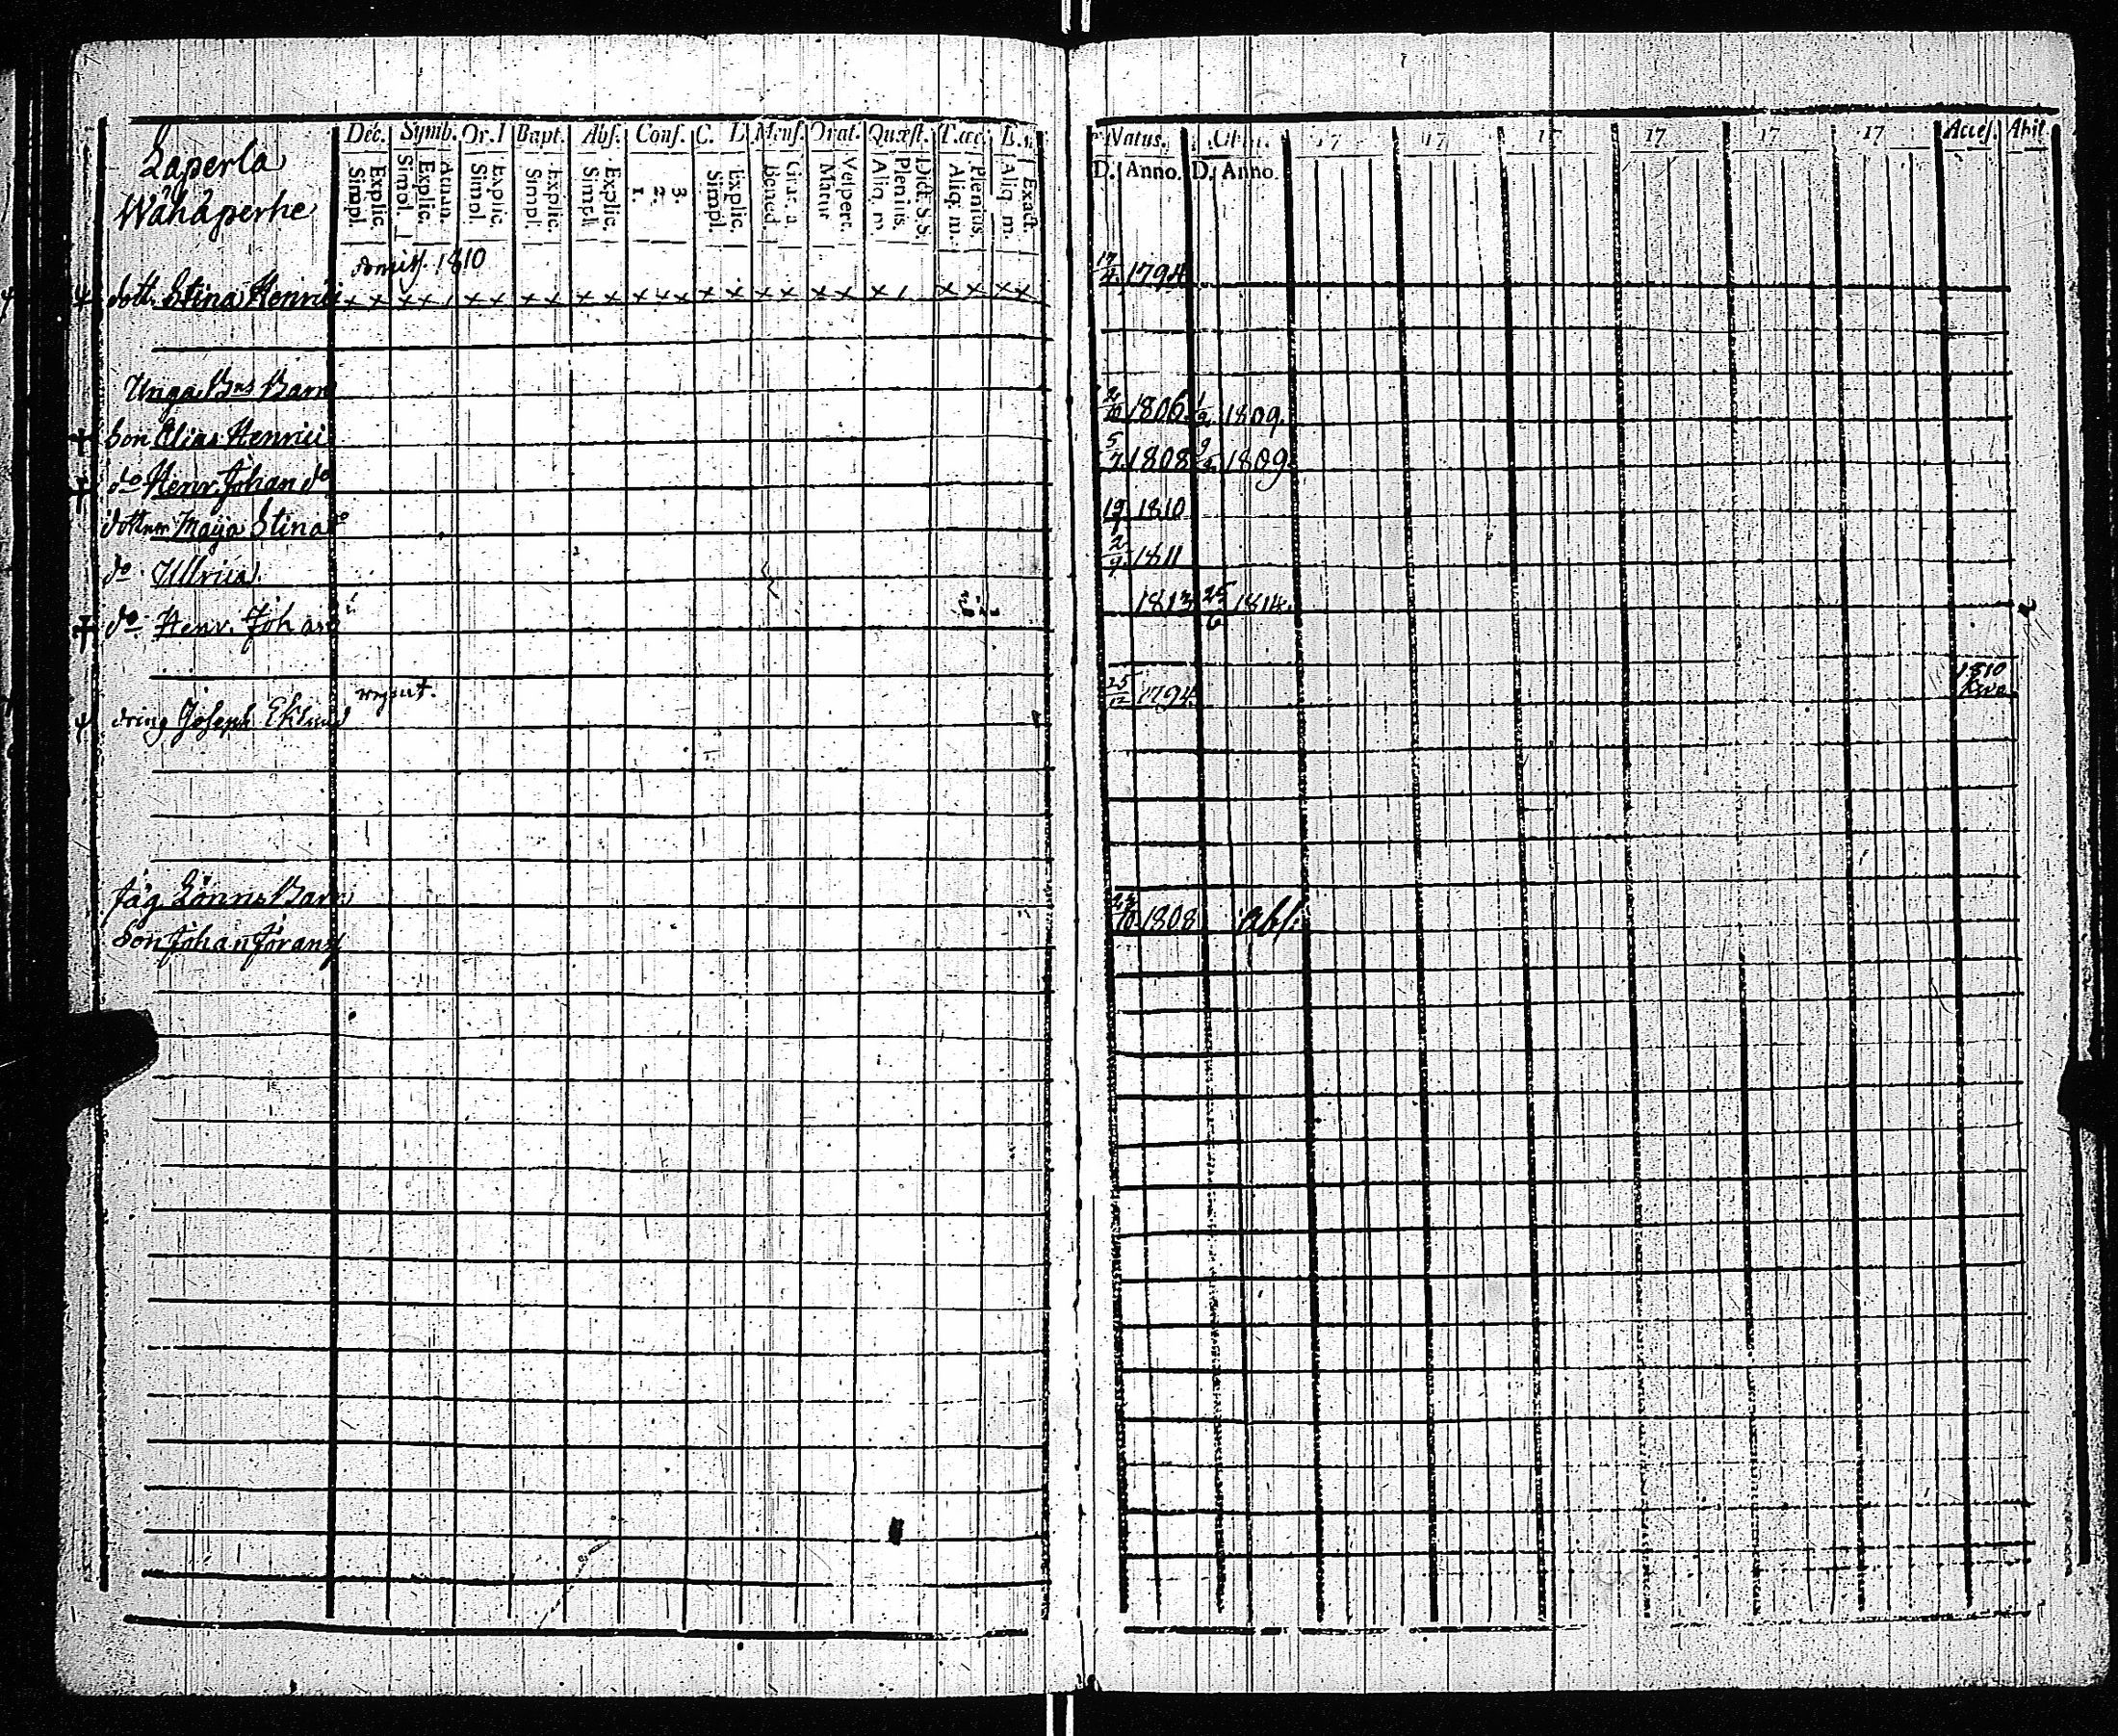 Laperla
Wähäperhe
Dec. Symb. Or. Bapt. Abs. Conf. C. L. Mens. Orat. Quæst. T. œc.
Explic. Simpl. Athan. Explic. Simpl. Explic. Simpl. Explic. Simpl. Explic. Simpl. 3. 2. 1. Explic. Simpl. Grat. a. Bened. Vespert. Matut. Dict. S. S. Plenius. Aliq. m. Plenius. Aliq. m. Exact. Aliq. m.
Natus. 17 17 17 17 17 17 Acces. Abit.
D. Anno. D. Anno.
admiss. 1810
dott. Stina Henrici x x x x 1 x x x x x x x x x x x x x x x x 1 x x x x 17/4 1794
Unga Bns Barn
Son Elias Henrici 2/10 1806. 1809.
do Henr. Johan do 5/7 1808 1809
Maja Stina do 19/1 1810
do Ullrica 2/9 1811
do Henr. Johan 1813 25/6 1814.
dräng Joseph Eklund 25/12 1794 1810
Son Johan 1808 abs: